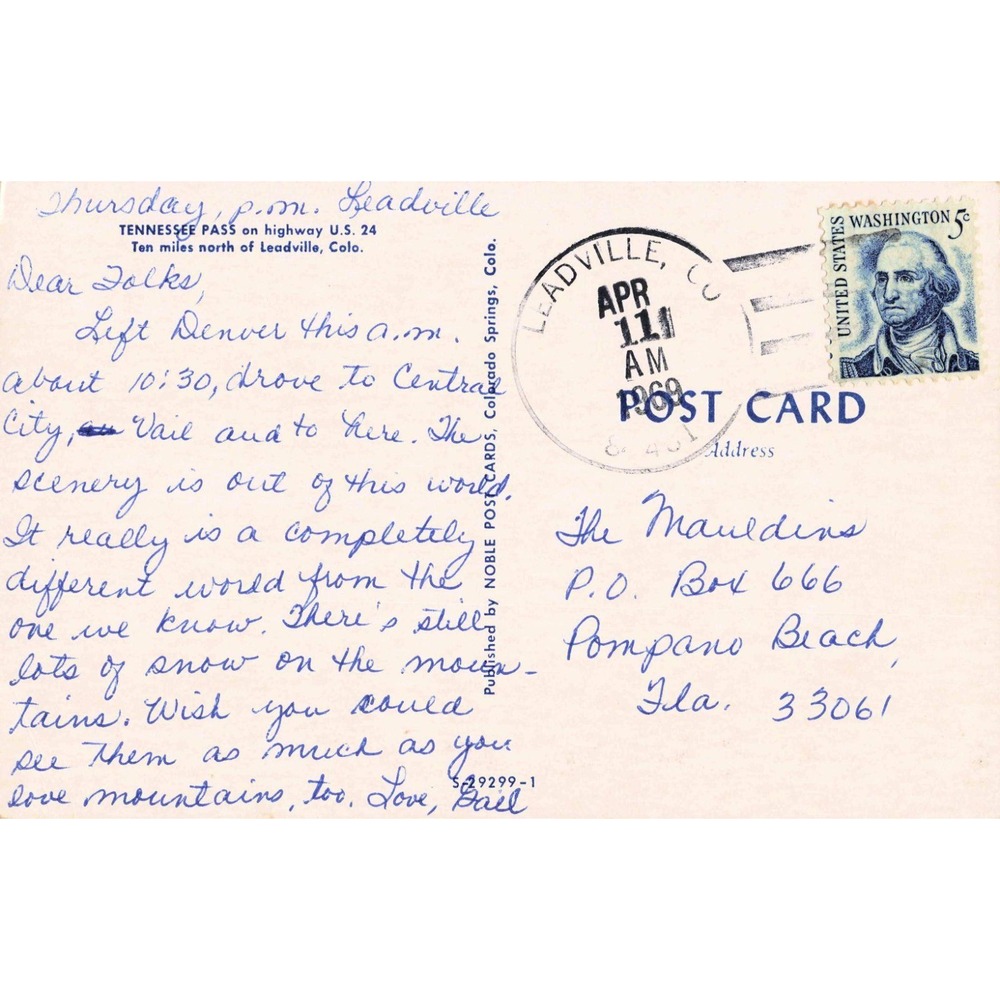 Thursday, p.m. Leadville
TENNESSEE PASS on highway U.S. 24
Ten miles north of Leadville, Colo.
Dear Folks,
Left Denver this a.m.
about 10:30, drove to Central
City, Vail and to here. The
scenery is out of this world.
It really is a completely
different world from the
one we know. There's still
lots of snow on the moun-
tains. Wish you could
see them as much as you
love mountains, too. Love, Gail
S-29299-1
Published by NOBLE POST CARDS, Colorado Springs, Colo.
LEADVILLE, CO
APR
11
AM
1969
UNITED STATES
WASHINGTON 5c
POST CARD
Address
The Mauldins
P.O. Box 666
Pompano Beach,
Fla. 33061